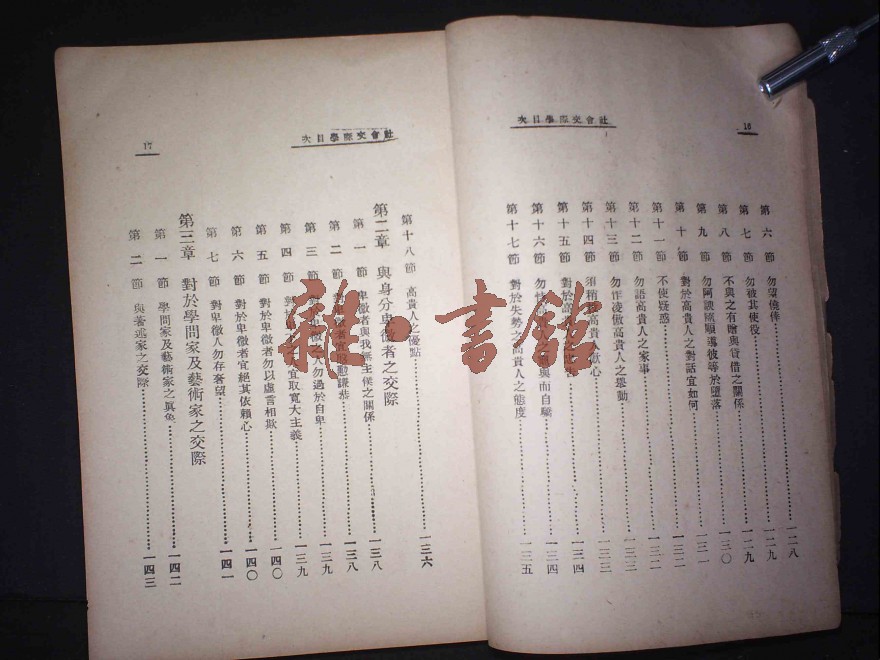 社會交際學目次
16
第六節 勿望僥倖 一二八
第七節 勿被其使役 一二九
第八節 不與之有贈與貸借之關係 一三〇
第九節 勿阿諛國順導彼等於墮落 一三一
第十節 對於高貴人之對話宜如何 一三二
第十一節 不使疑惑 一三二
第十二節 勿語高貴人之家事 一三二
第十三節 勿詐凌傲高貴人之舉動 一三三
第十四節 須稍 高貴人 心 一三四
第十五節 對於高 一三四
第十六節 勿 與而自驕 一三四
第十七節 對於失勢之高貴人之態度 一三五
社會交際學目次
17
第十八節 高貴人之優點 一三六
第二章 與身分卑微者之交際
第一節 卑微者與我無主侯之關係 一三八
第二節 卑微者宜 勤謙恭 一三八
第三節 卑微之人勿過於自卑 一三九
第四節 對於 宜取寬大主義 一三九
第五節 對於卑微者勿以虛言相欺 一四〇
第六節 對於卑微者宜絕其依賴心 一四〇
第七節 對卑微人勿存奢望 一四一
第三章 對於學問家及藝術家之交際
第一節 學問家及藝術家之真兔 一四二
第二節 與著述家之交際 一四三
雜·書館